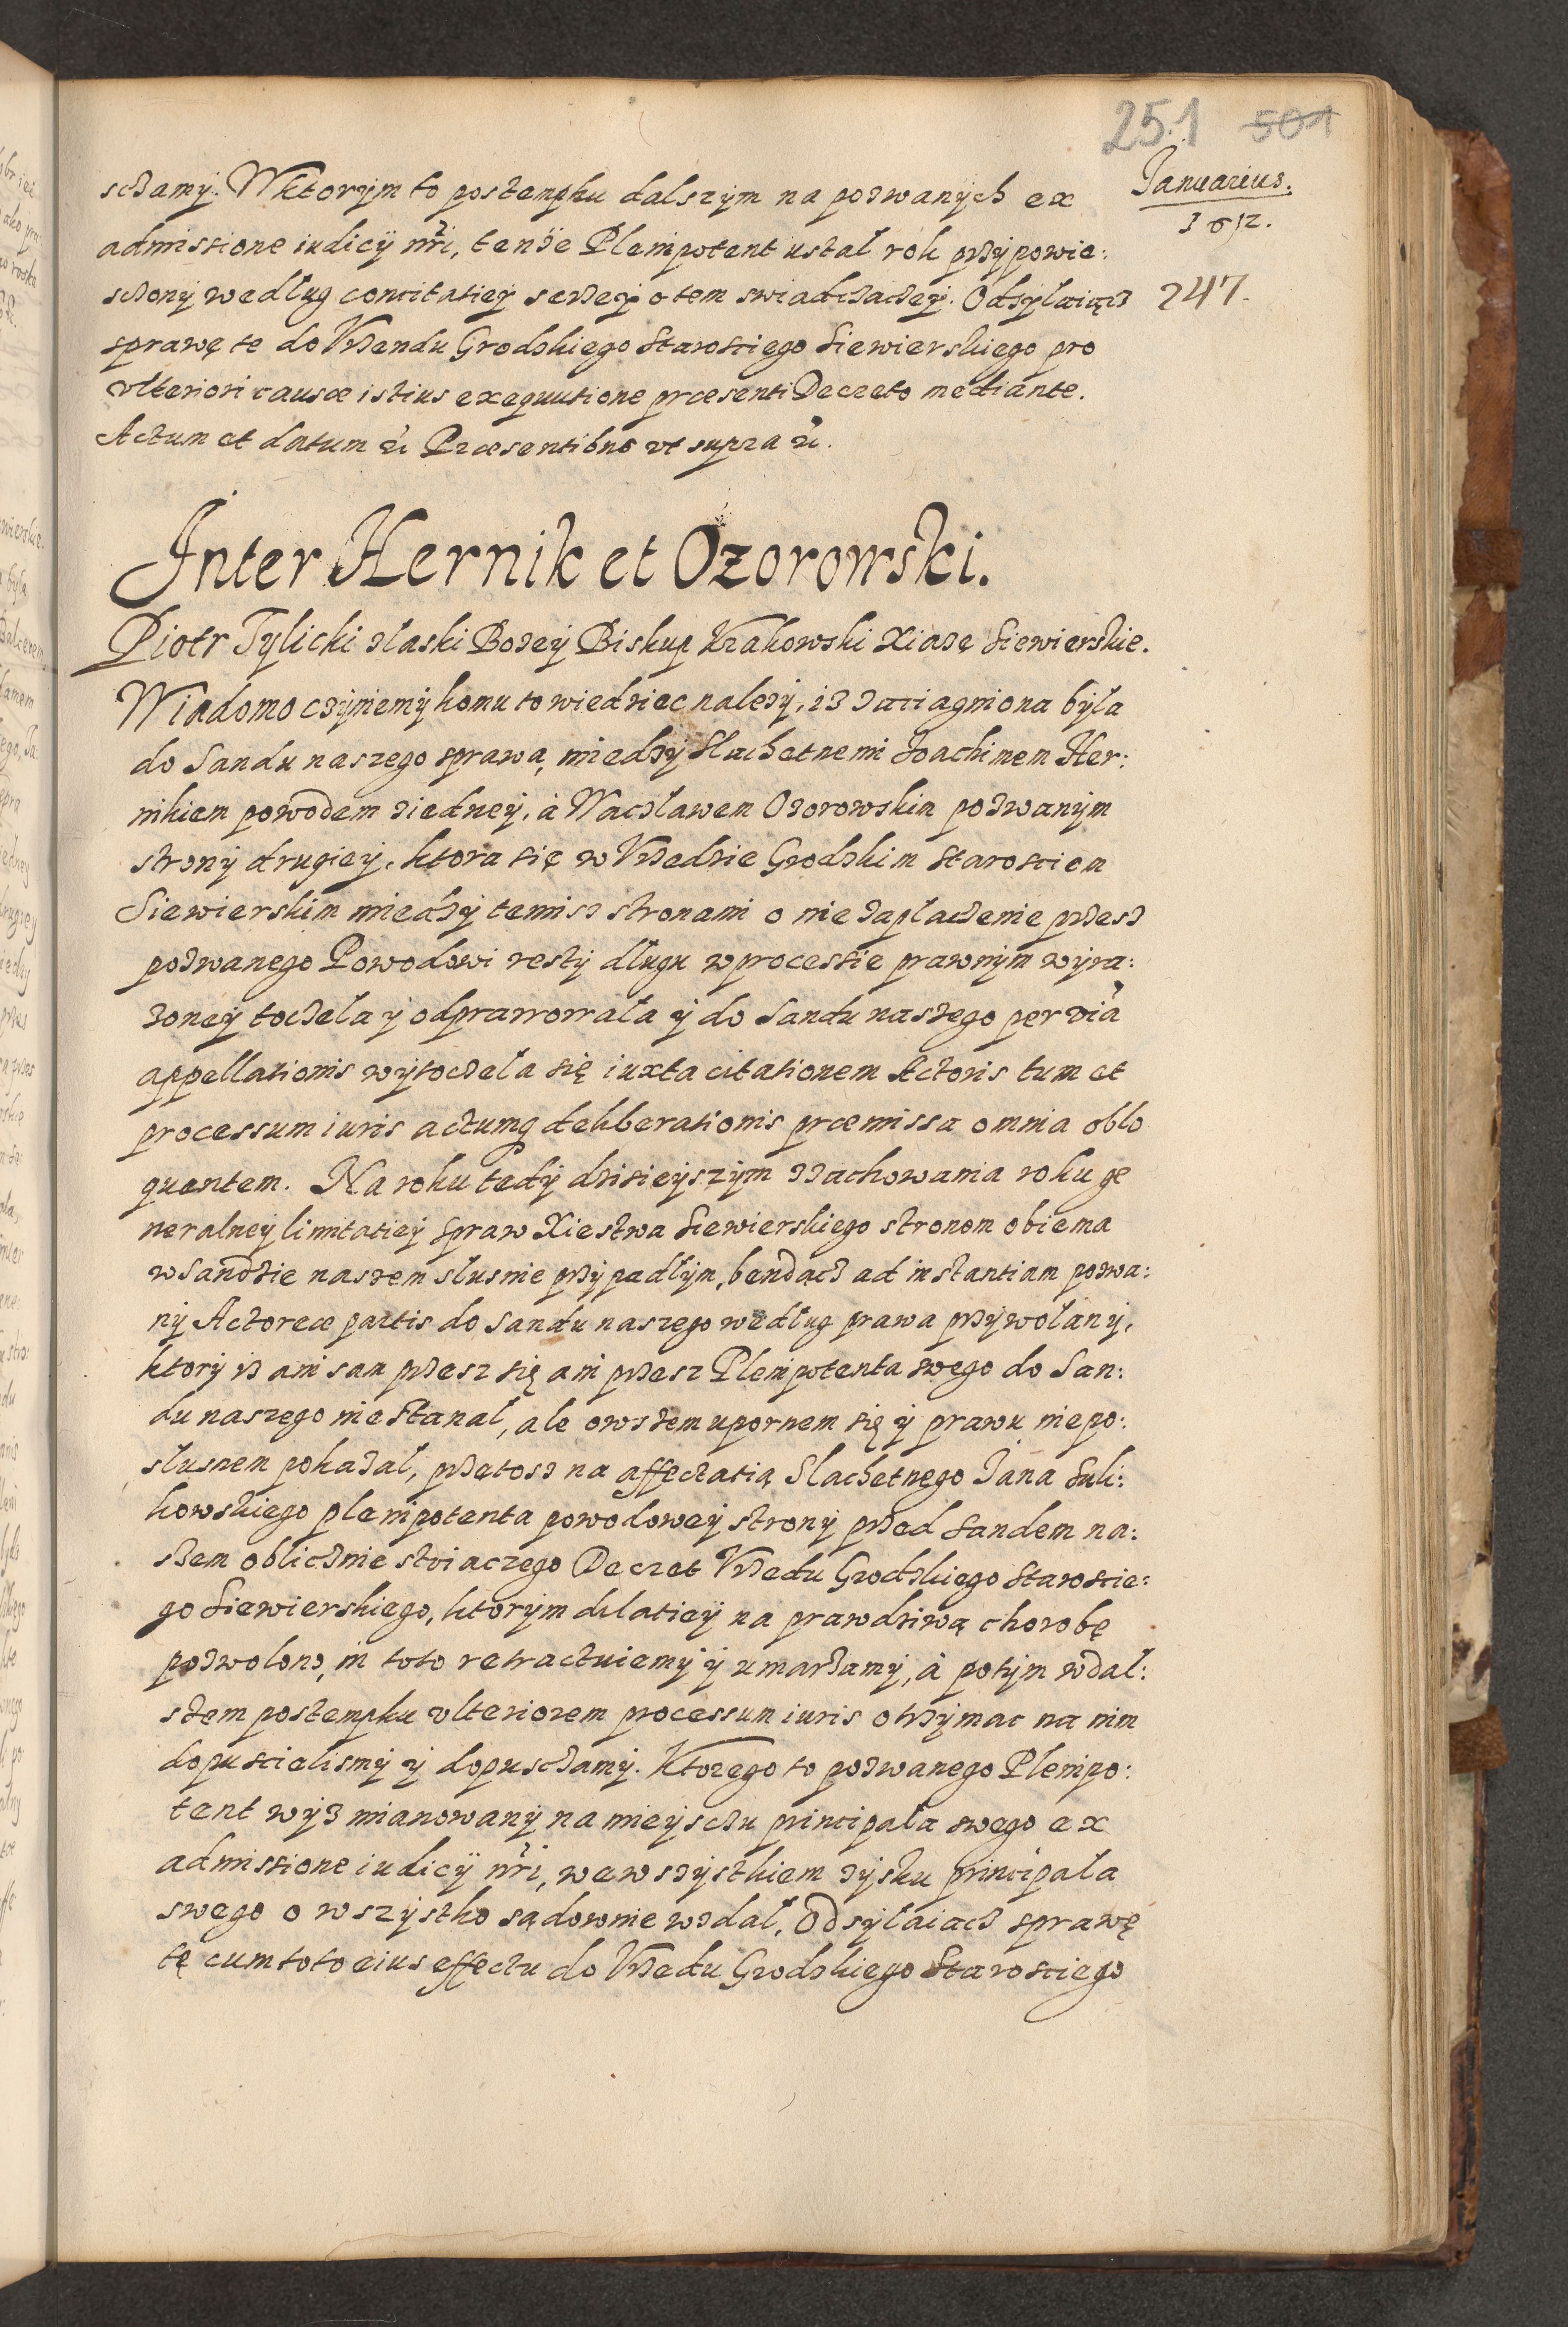 251 501
Januarius.
1612.
247.
sczamÿ. Wktorÿm to postempku dalszÿm na pozwanÿch ex
admissione iudicÿ nři, tenże Plenipotent ustal rok przÿpowie:
sczonÿ według concitatieÿ sczeÿ o tem swiadczaczeÿ. Odsÿlaiącz
sprawę te do Vrzendu Grodzkiego Starosciego Siewierskiego pro
vlteriori causæ istius exequutione præsenti Decreto mediante.
Actum et datum ꝛc Præsentibus vt supra ꝛc.
Inter Hernik et Ozorowski.
Piotr Tÿlicki złaski Bożeÿ Biskup Krakowski Xiążę Siewierskie.
Wiadomo czÿniemÿ komu to wiedziec należÿ, iż zaciagniona bÿla
do Sandu naszego sprawa, miedzÿ Slachetnemi Joachimem Her:
nikiem powodem ziedneÿ, à Wacżlawem Ozorowskim pozwanÿm
stronÿ drugieÿ, ktora się w Vrzedzie Grodzkim Staroscien
Siewierskim miedzÿ temisz stronami o nie zaplaczenie przesz
pozwanego Powodowi restÿ długu w processie prawnÿm wÿra:
żoneÿ toczela ÿ odprawowala ÿ do Sandu naszego per via
appellationis wÿtoczela się iuxta citationem Actoris tum et
processum iuris actumq deliberationis præmissa omnia oblo
quentem. Na roku tedÿ dzisieÿszÿm zzachowania roku ge
neralneÿ limitatieÿ spraw Xiestwa Siewierskiego stronom obiema
wSandzie naszem slusnie przÿpadlÿm, bendącz ad instantiam pozwa:
nÿ Actoreæ partis do Sandu naszego według prawa przÿwolanÿ,
ktorÿ iż ani sam przesz się ani przesz Plenipotenta swego do San:
du naszego nie stanal, ale owszem upornem się ÿ prawu niepo:
slusnem pokazal, przetosz na affectatią Slachetnego Jana Suli:
kowskiego plenipotenta powodoweÿ stronÿ przed Sandem na:
szem oblicznie stoiaczego Decret Vrzedu Grodzkiego Staroscie:
go Siewierskiego, ktorÿm dilatieÿ na prawdziwą chorobę
pozwolono, in toto retractuiemÿ ÿ umarzamÿ, à potÿm wdal:
szem postempku vlteriorem processum iuris otrzÿmac na nim
dopuscielismÿ ÿ dopusczamÿ. Ktorego to pozwanego Plenipo:
tent wÿż mianowanÿ na mieÿsczu principala swego ex
admissione iudicÿ nři, wewszÿstkiem zÿsku principala
swego o wszÿstko sądownie wzdal, Odsÿlaiacz sprawę
tę cum toto eius effectu do Vrzedu Grodzkiego Starosciego